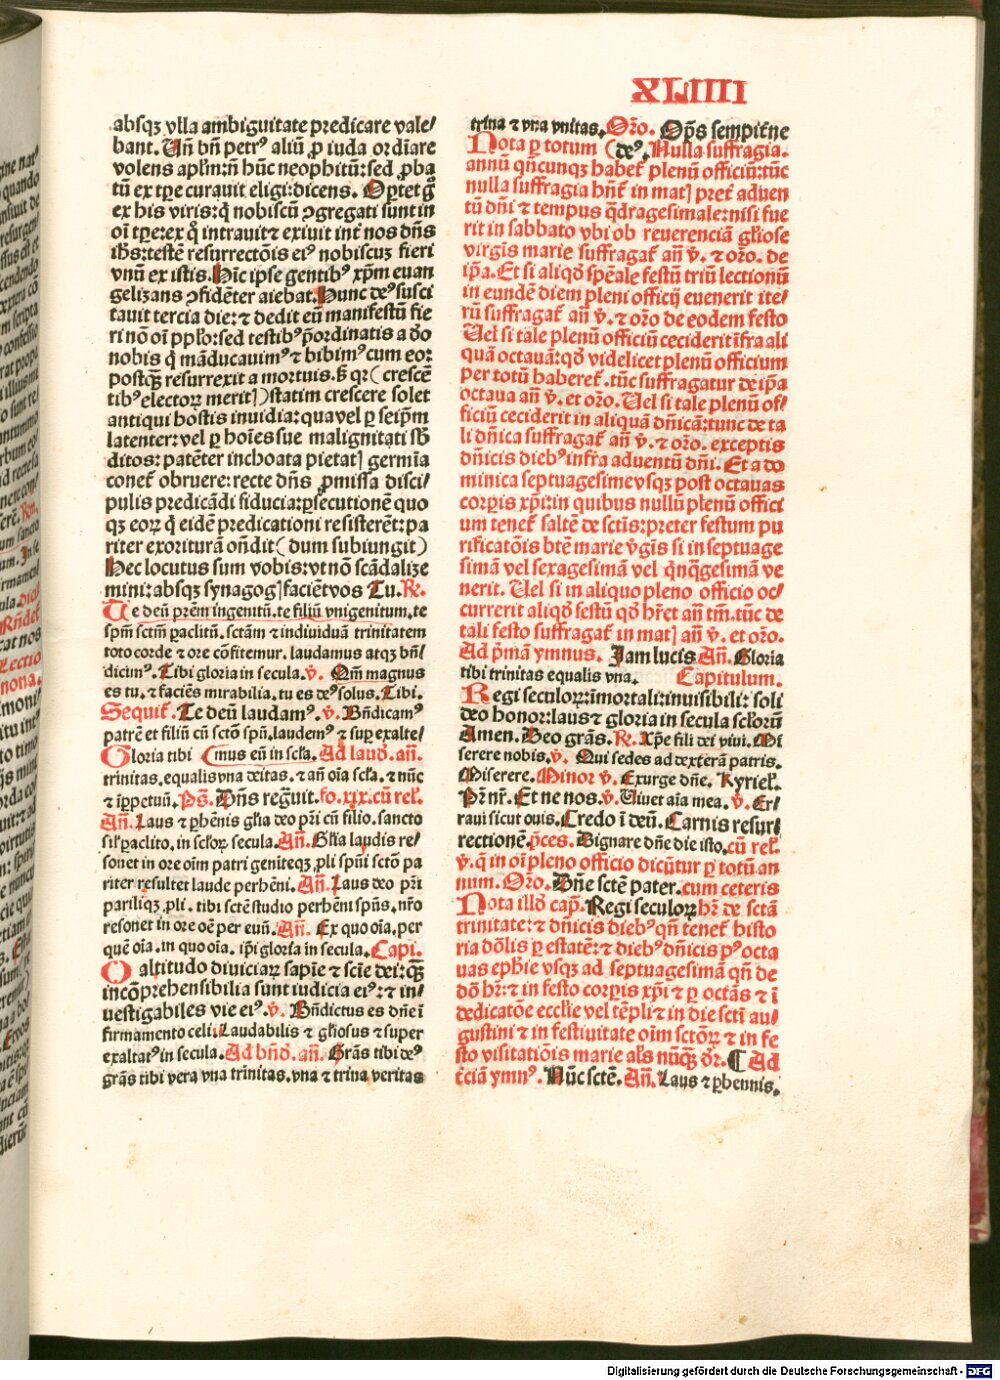 XLIIII
absqꝫ vlla ambiguitate predicare vale/
bant. Uñ bñ petrꝰ aliū ꝓ iuda ordīare
volens apl̄m:ñ hūc neophitū:sed ꝓba
tū ex tꝑe curauit eligi:dicens. Oꝑtet g̊
ex his viris:q̇ nobiscū ꝯgregati sunt in
oī tꝑe:ex q̊ intrauit ⁊ exiuit int̄ nos dn̄s
ih̄s:testē resurrectōis eiꝰ nobiscuꝫ fieri
vnū ex istis. Hīc ipse gentibꝰ xp̄m euan
gelizans ꝯfidēter aiebat. Hunc deꝰ susci
tauit tercia die: ⁊ dedit eū manifestū fie
ri nō oī pplo:sed testibꝰ p̄ordinatis a d̄o
nobis q̇ māducauimꝰ ⁊ bibimꝰ cum eo:
postq̄ꝫ resurrexit a mortuis. ꝫ qꝛ ( crescē
tibꝰ electoꝝ meritꝭ ) statim crescere solet
antiqui hostis inuidia: qua vel ꝑ seip̄m
latenter: vel ꝑ hoīes sue malignitati sb̄
ditos: patēter inchoata pietatꝭ germīa
conet̄ obruere: recte dn̄s ꝓmissa disci/
pulis predicādi fiducia: ꝑsecutionē quo
qꝫ eoꝝ q̇ eidē predicationi resisterēt: pa
riter exoriturā on̄dit ( dum subiungit )
Hec locutus sum vobis: vt nō scādalize
mini: absqꝫ synagogꝭ faciēt vos Tu. R̄.
Te deū prēm ingenitū. te filiū vnigenitum. te
sp̄m sctm̄ paclitū. sctām ⁊ indiuiduā trinitatem
toto corde ⁊ ore cōfitemur. laudamus atqꝫ bn̄/
dicimꝰ. Tibi gloria in secula. v̄. Qm̄ magnus
es tu. ⁊ faciēs mirabilia. tu es deꝰ solus. Tibi.
Sequit̄. Te deū laudamꝰ. v̄. Bn̄dicamꝰ
patrē et filiū cū sctō spū. laudemꝰ ⁊ suꝑ exalte/
Gloria tibi ( mus eū in scl̄a. Ad laud̄. añ.
trinitas. equalis vna deitas. ⁊ añ oīa scl̄a. ⁊ nūc
⁊ īꝑpetuū. Ps̄. Dn̄s regn̄uit. fo. xix. cū rel̄.
Añ. Laus ⁊ ꝑhēnis gl̄ia deo pr̄i cū filio. sancto
sil̄ paclito. in scl̄oꝝ secula. Añ. Gl̄ia laudis re/
sonet in ore oīm patri geniteqꝫ ꝓli spūi sctō pa
riter resultet laude perhēni. Añ. Laus deo pr̄i
pariliqꝫ ꝓli. tibi sctē studio perhēni spūs. nr̄o
resonet in ore oē per euū. Añ. Ex quo oīa. per
quē oīa. in quo oīa. ip̄i gloria in secula. Capi.
O altitudo diuiciaꝝ sapīe ⁊ sciē dei: q̄ꝫ
incōprehensibilia sunt iudicia eiꝰ: ⁊ in/
uestigabiles vie eiꝰ. v̄. Bn̄dictus es dn̄e ī
firmamento celi. Laudabilis ⁊ gl̄iosus ⁊ super
exaltatꝰ in secula. Ad bn̄d̄. añ. Grās tibi deꝰ
grās tibi vera vna trīnitas. vna ⁊ trina veritas
trina ⁊ vna vnitas. Oro̅. Op̄s sempit̄ne
Nota ꝑ totum ( deꝰ. Nulla suffragia.
annū qn̄cunqꝫ habet̄ plenū officiū: tūc
nulla suffragia hn̄t̄ in matꝭ pret̄ aduen
tū dn̄i ⁊ tempus q̄dragesimale: nisi fue
rit in sabbato vbi ob reuerenciā gl̄iose
virgīs marie suffragat̄ añ v̄. ⁊ oro̅. de
ip̄a. Et si aliqd̄ spēale festū triū lectionū
in eundē diem pleni officij euenerit ite/
rū suffragat̄ añ v̄. ⁊ oro̅ de eodem festo
Uel si tale plenū officiū ceciderit īfra ali
quā octauā: qd̄ videlicet plenū officium
per totū haberet̄. tūc suffragatur de ip̄a
octaua añ v̄. et oro̅. Uel si tale plenū of/
ficiū ceciderit in aliquā dn̄icā: tunc de ta
li dn̄ica suffragat̄ añ v̄. ⁊ oro̅. exceptis
dn̄icis diebꝰ infra aduentū dn̄i. Et a do
minica septuagesime vsqꝫ post octauas
corꝑis xp̄i: in quibus nullū plenū offici
um tenet̄ saltē de sctīs: preter festum pu
rificatōis btē marie v̄gīs si in septuage
simā vel sexagesimā vel qn̄qgesimā ve
nerit. Uel si in aliquo pleno officio oc/
currerit aliqd̄ festū qd̄ hr̄et añ tm̄. tūc de
tali festo suffragat̄ in matꝭ añ v̄. et oro̅.
Ad p̄mā ymnus. Jam lucis Añ. Gloria
tibi trinitas equalis vna. Capitulum.
Regi seculoꝝ: īmortali: inuisibili: soli
deo honor: laus ⁊ gloria in secula scl̄orū
Amen. Deo grās. R̄. Xp̄e fili dei viui. Mi
serere nobis. v̄. Qui sedes ad dexterā patris.
Miserere. Minor v̄. Exurge dn̄e. Kyriel̄.
Pr̄ nr̄. Et ne nos. v̄. Uiuet aīa mea. v̄. Er/
raui sicut ouis. Credo ī deū. Carnis resur/
rectionē. p̄ces. Dignare dn̄e die isto. cū rel̄.
v̄. q̇ in oī pleno officio dicūtur ꝑ totū an
num. Oro̅. Dn̄e sctē pater. cum ceteris
Nota illd̄ cap̄. Regi seculoꝝ hr̄ de sctā
trinitate: ⁊ dn̄icis diebꝰ qn̄ tenet̄ histo
ria dōlis ꝑ estatē: ⁊ diebꝰ dn̄icis pꝰ octa
uas epħie vsqꝫ ad septuagesimā qn̄ de
dō hr̄: ⁊ in festo corꝑis xp̄i ⁊ ꝑ octās ⁊ ī
dedicatōe ecclīe vel tēpli ⁊ in die sctī au/
gustini ⁊ in festiuitate oīm sctōꝝ ⁊ in fe
sto visitatiōis marie als̄ nūq̄ꝫ dr̄. ¶ Ad
t̄ciā ymnꝰ. Nūc sctē. Añ. Laus ⁊ ꝑhennis.
Digitalisierung gefördert durch die Deutsche Forschungsgemeinschaft - DFG